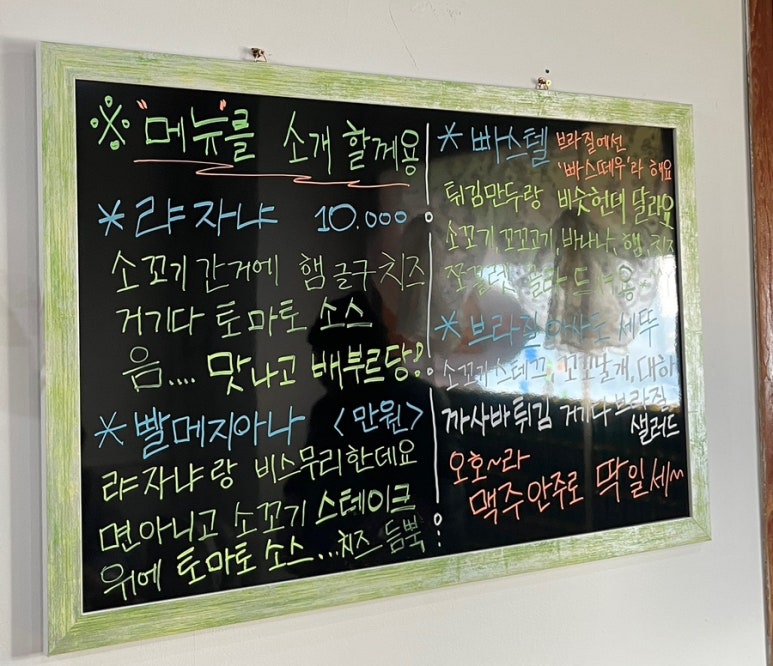 ※ "메뉴"를 소개 할께용
* 랴자냐 10.000
소꼬기 간거에 햄 글구 치즈
거기다 토마토 소스
음.... 맛나고 배부르당!
* 빨메지아나 <만원>
랴자냐랑 비스무리한데요
면아니고 소꼬기 스테이크
위에 토마토 소스...치즈 듬뿍
* 빠스텔 브라질에선
'빠스떼우'라 해요
튀김만두랑 비슷헌데 달라요
소꼬기, 꼬꼬고기, 바나나, 햄, 치즈
쪼꼴렛 골라
* 브라질 아사도 세뚜
소꼬기스테끼, 꼬꼬날개, 대하
까사바튀김 거기다 브라질
샐러드
오호~라
맥주안주로 딱일세~